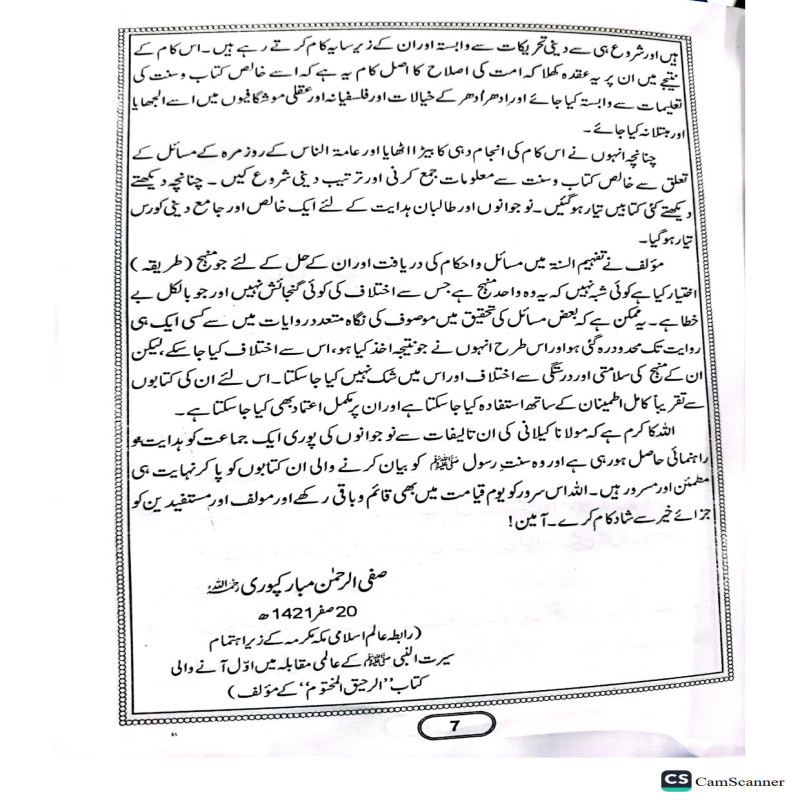 ہیں اور شروع ہی سے دینی تحریکات سے وابستہ اور ان کے زیر سایہ کام کرتے رہے ہیں۔ اس کام کے
نتیجے میں ان پر یہ عقدہ کھلا کہ امت کی اصلاح کا اصل کام یہ ہے کہ اسے خالص کتاب و سنت کی
تعلیمات سے وابستہ کیا جائے اور ادھر اُدھر کے خیالات اور فلسفیانہ اور عقلی موشگافیوں میں اسے الجھایا
اور مبتلا نہ کیا جائے۔
چنانچہ انہوں نے اس کام کی انجام دہی کا بیڑا اٹھایا اور عامۃ الناس کے روز مرہ کے مسائل کے
تعلق سے خالص کتاب و سنت سے معلومات جمع کرنی اور ترتیب دینی شروع کیں۔ چنانچہ دیکھتے
دیکھتے کئی کتابیں تیار ہو گئیں۔ نوجوانوں اور طالبان ہدایت کے لئے ایک خالص اور جامع دینی کورس
تیار ہو گیا۔
مؤلف نے تفہیم السنۃ میں مسائل و احکام کی دریافت اور ان کے حل کے لئے جو منہج (طریقہ)
اختیار کیا ہے کوئی شبہ نہیں کہ یہ وہ واحد منہج ہے جس سے اختلاف کی کوئی گنجائش نہیں اور جو بالکل بے
خطا ہے۔ یہ ممکن ہے کہ بعض مسائل کی تحقیق میں موصوف کی نگاہ متعدد روایات میں سے کسی ایک ہی
روایت تک محدود رہ گئی ہو اور اس طرح انہوں نے جو نتیجہ اخذ کیا ہو، اس سے اختلاف کیا جا سکے، لیکن
ان کے منہج کی سلامتی اور درستگی سے اختلاف اور اس میں شک نہیں کیا جا سکتا۔ اس لئے ان کی کتابوں
سے تقریباً کامل اطمینان کے ساتھ استفادہ کیا جا سکتا ہے اور ان پر مکمل اعتماد بھی کیا جا سکتا ہے۔
اللہ کا کرم ہے کہ مولانا کیلانی کی ان تالیفات سے نوجوانوں کی پوری ایک جماعت کو ہدایت و
راہنمائی حاصل ہو رہی ہے اور وہ سنتِ رسول ﷺ کو بیان کرنے والی ان کتابوں کو پا کر نہایت ہی
مطمئن اور مسرور ہیں۔ اللہ اس سرور کو یوم قیامت میں بھی قائم و باقی رکھے اور مولف اور مستفیدین کو
جزائے خیر سے شاد کام کرے۔ آمین!
صفی الرحمٰن مبارکپوری رحمہ اللہ
20 صفر 1421ھ
(رابطہ عالم اسلامی مکہ مکرمہ کے زیر اہتمام
سیرت النبی ﷺ کے عالمی مقابلہ میں اوّل آنے والی
کتاب ”الرحیق المختوم“ کے مؤلف)
7
CS CamScanner